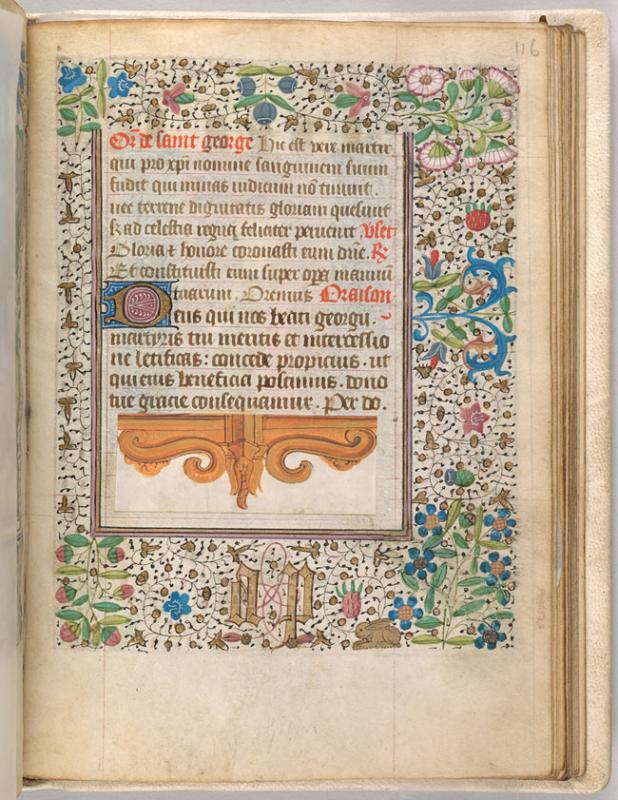 116
Or̄ de saint george Hic est vere martir
qui pro xpi nomine sanguinem suum
fudit qui minas iudicum nō timuit.
nec terrene dignitatis gloriam quesiuit
sȝ ad celestia regna feliciter peruenit vset
Gloria ⁊ honore coronasti eum dn̄e. R
Et constituisti eum super opa manuū
tuarum. Oremus Oraison
Deus qui nos beati georgij
martyris tui meritis et intercessio
ne letificas: concede propicius. ut
qui eius beneficia poscimus. dono
tue gracie consequamur. Per do.